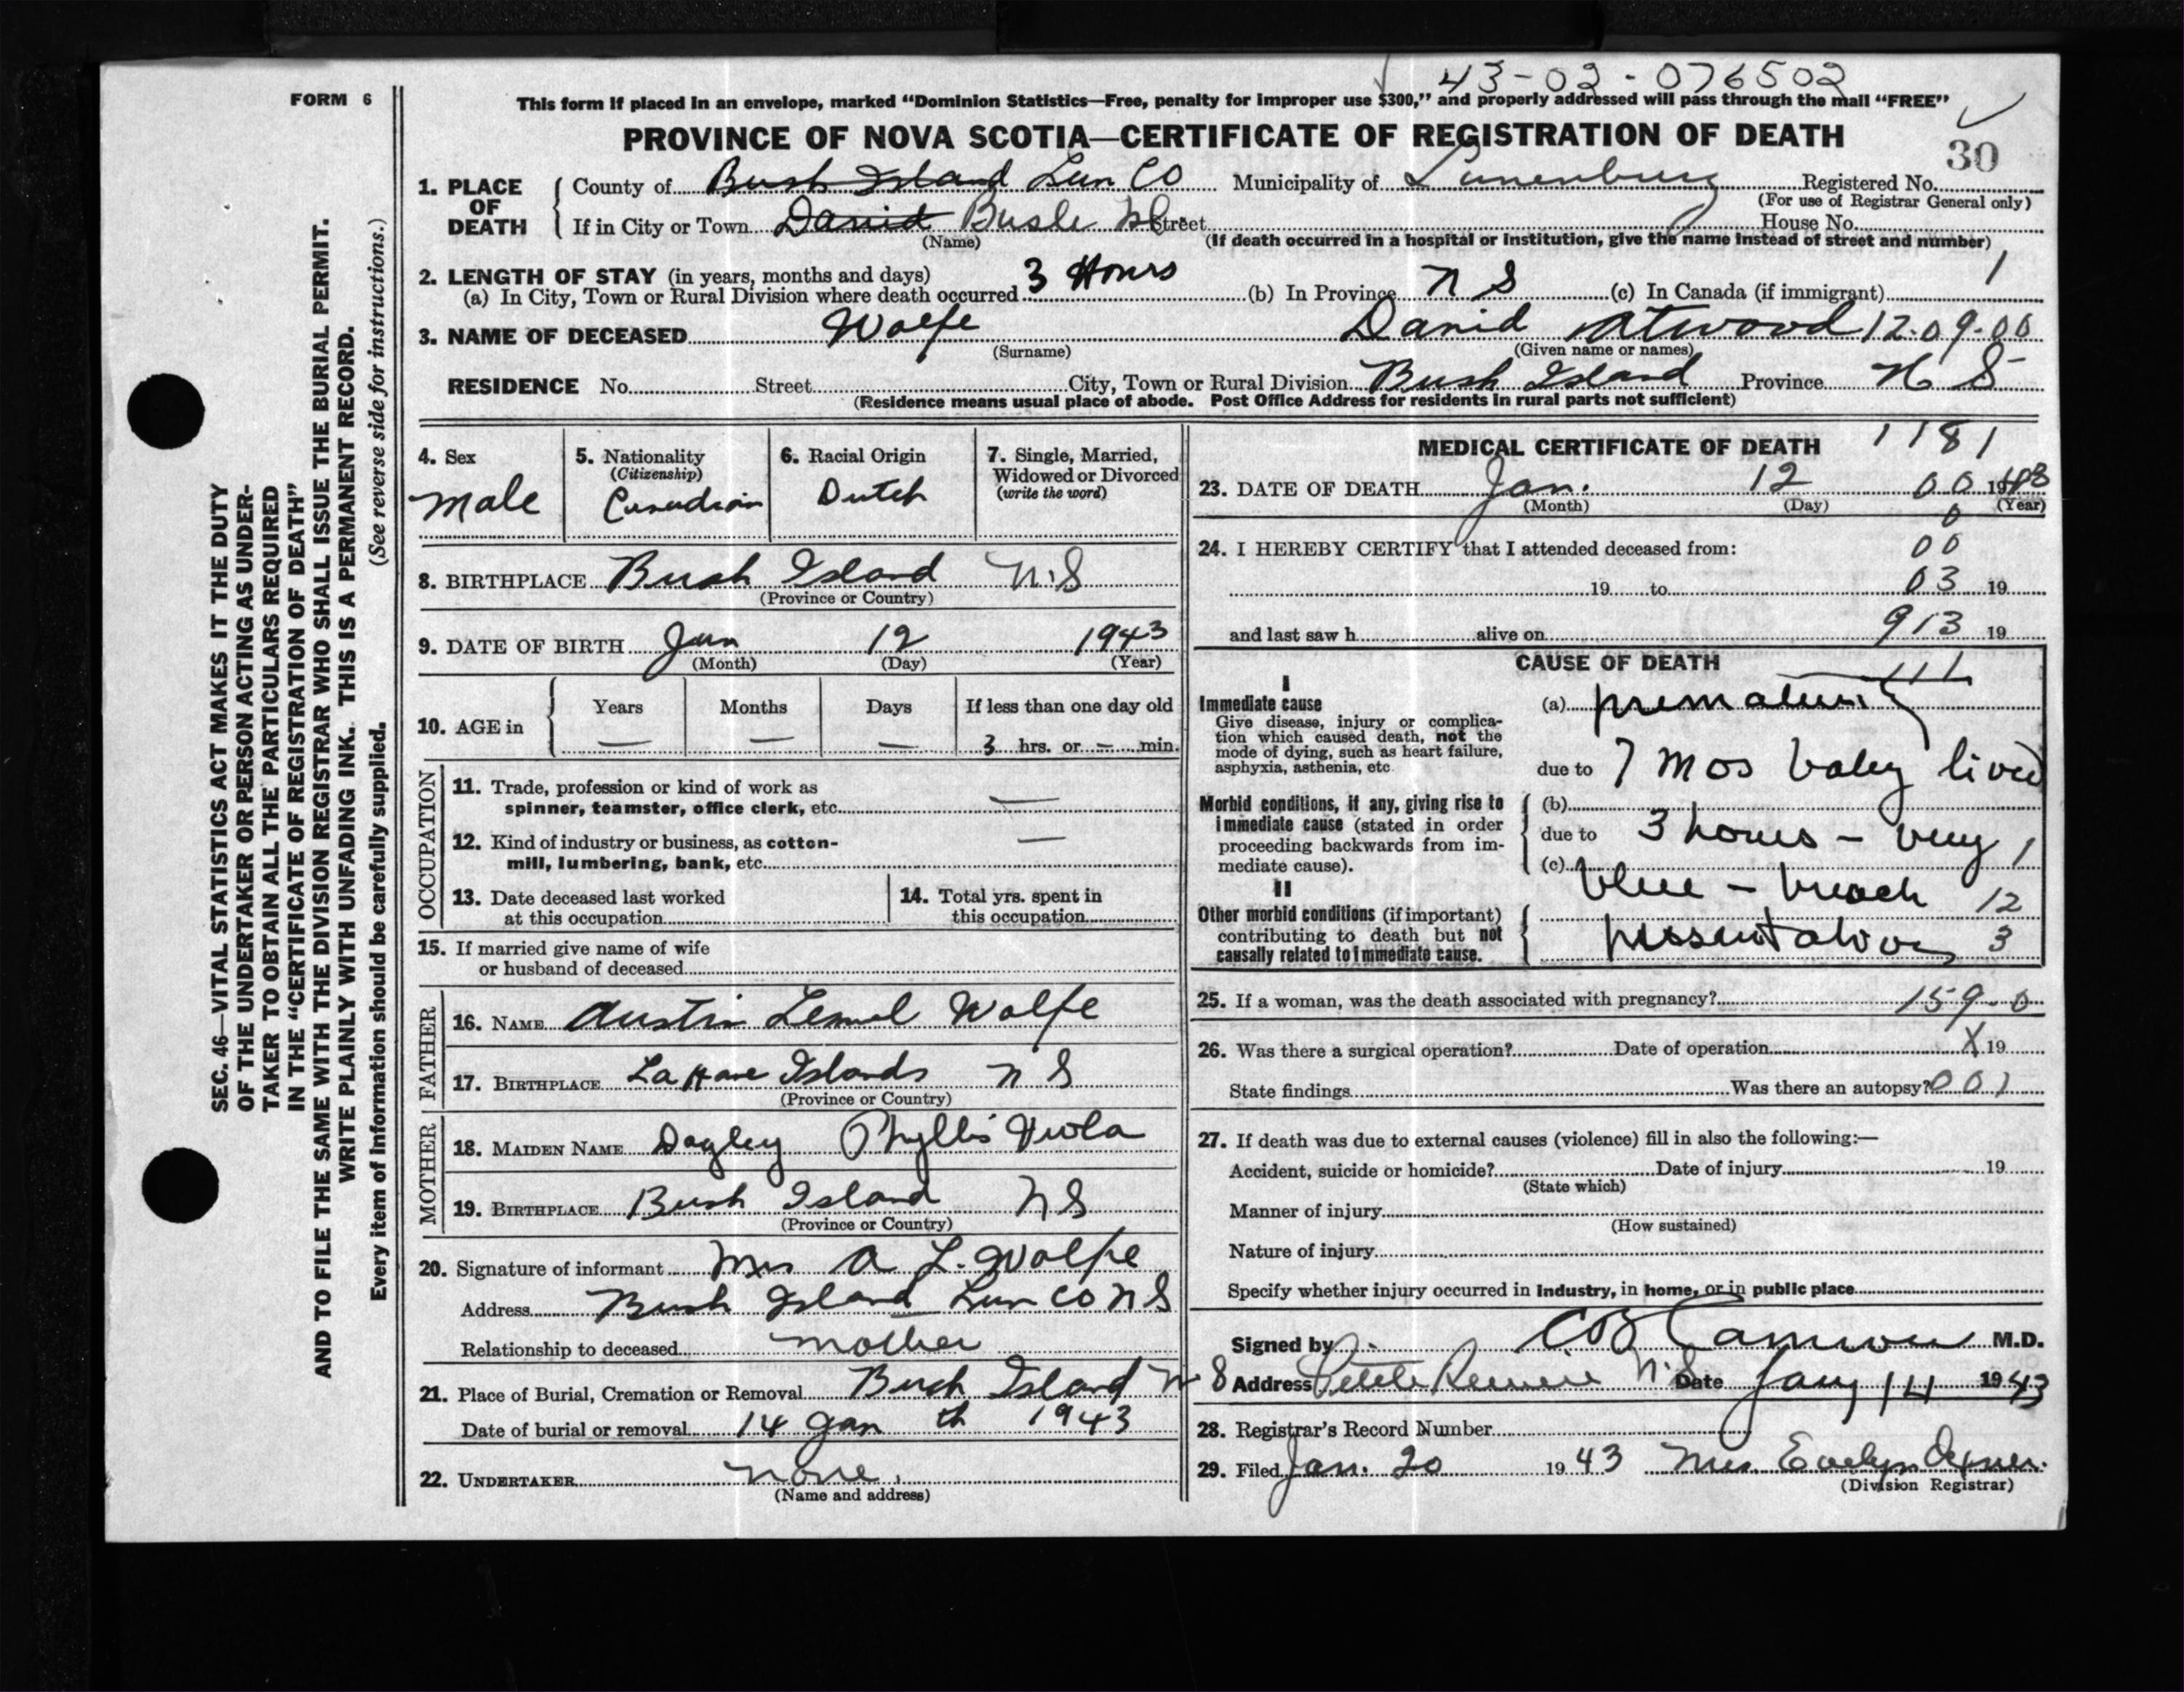 43-02-076502
FORM 6
This form if placed in an envelope, marked "Dominion Statistics—Free, penalty for improper use $300," and properly addressed will pass through the mail "FREE"
PROVINCE OF NOVA SCOTIA—CERTIFICATE OF REGISTRATION OF DEATH
30
1. PLACE OF DEATH
County of Bush Island Lun Co Municipality of Lunenburg Registered No.
(For use of Registrar General only)
If in City or Town David Street House No.
(Name) (If death occurred in a hospital or institution, give the name instead of street and number)
2. LENGTH OF STAY (in years, months and days)
(a) In City, Town or Rural Division where death occurred 3 Hours (b) In Province N S (c) In Canada (if immigrant) 1
3. NAME OF DECEASED Wolfe David Atwood 12-09-00
(Surname) (Given name or names)
RESIDENCE No. Street City, Town or Rural Division Bush Island Province N S
(Residence means usual place of abode. Post Office Address for residents in rural parts not sufficient)
4. Sex
Male
5. Nationality
(Citizenship)
Canadian
6. Racial Origin
Dutch
7. Single, Married, Widowed or Divorced
(write the word)
8. BIRTHPLACE Bush Island N.S
(Province or Country)
9. DATE OF BIRTH Jan 12 1943
(Month) (Day) (Year)
10. AGE in
Years Months Days If less than one day old
— — — 3 hrs. or — min.
OCCUPATION
11. Trade, profession or kind of work as
spinner, teamster, office clerk, etc. —
12. Kind of industry or business, as cotton-
mill, lumbering, bank, etc. —
13. Date deceased last worked
at this occupation
14. Total yrs. spent in
this occupation
15. If married give name of wife
or husband of deceased
FATHER
16. NAME Austin Lemul Wolfe
17. BIRTHPLACE LaHave Islands N S
(Province or Country)
MOTHER
18. MAIDEN NAME Dagley Phyllis Viola
19. BIRTHPLACE Bush Island N S
(Province or Country)
20. Signature of informant Mrs A L. Wolfe
Address Bush Island Lun Co N S
Relationship to deceased mother
21. Place of Burial, Cremation or Removal Bush Island N S
Date of burial or removal 14 Jan th 1943
22. UNDERTAKER none.
(Name and address)
MEDICAL CERTIFICATE OF DEATH 1181
23. DATE OF DEATH Jan. 12 00 1943
(Month) (Day) (Year)
0
24. I HEREBY CERTIFY that I attended deceased from: 00
19 to 03 19
and last saw h alive on 913 19
CAUSE OF DEATH
I
Immediate cause
Give disease, injury or complica-
tion which caused death, not the
mode of dying, such as heart failure,
asphyxia, asthenia, etc.
(a) prematurity
due to 7 mos baby lived
Morbid conditions, if any, giving rise to
immediate cause (stated in order
proceeding backwards from im-
mediate cause).
(b)
due to 3 hours – very 1
(c) blue – breach 12
II
Other morbid conditions (if important)
contributing to death but not
causally related to immediate cause.
presentation 3
25. If a woman, was the death associated with pregnancy? 159-0
26. Was there a surgical operation? Date of operation X 19
State findings Was there an autopsy? 001
27. If death was due to external causes (violence) fill in also the following:—
Accident, suicide or homicide? Date of injury 19
(State which)
Manner of injury
(How sustained)
Nature of injury
Specify whether injury occurred in industry, in home, or in public place
Signed by M.D.
Address Petite Riviere N.S Date Jany 14 1943
28. Registrar's Record Number
29. Filed Jan. 20 1943 Mrs. Evelyn
(Division Registrar)
SEC. 46—VITAL STATISTICS ACT MAKES IT THE DUTY
OF THE UNDERTAKER OR PERSON ACTING AS UNDER-
TAKER TO OBTAIN ALL THE PARTICULARS REQUIRED
IN THE "CERTIFICATE OF REGISTRATION OF DEATH"
AND TO FILE THE SAME WITH THE DIVISION REGISTRAR WHO SHALL ISSUE THE BURIAL PERMIT.
WRITE PLAINLY WITH UNFADING INK. THIS IS A PERMANENT RECORD.
Every item of information should be carefully supplied. (See reverse side for instructions.)